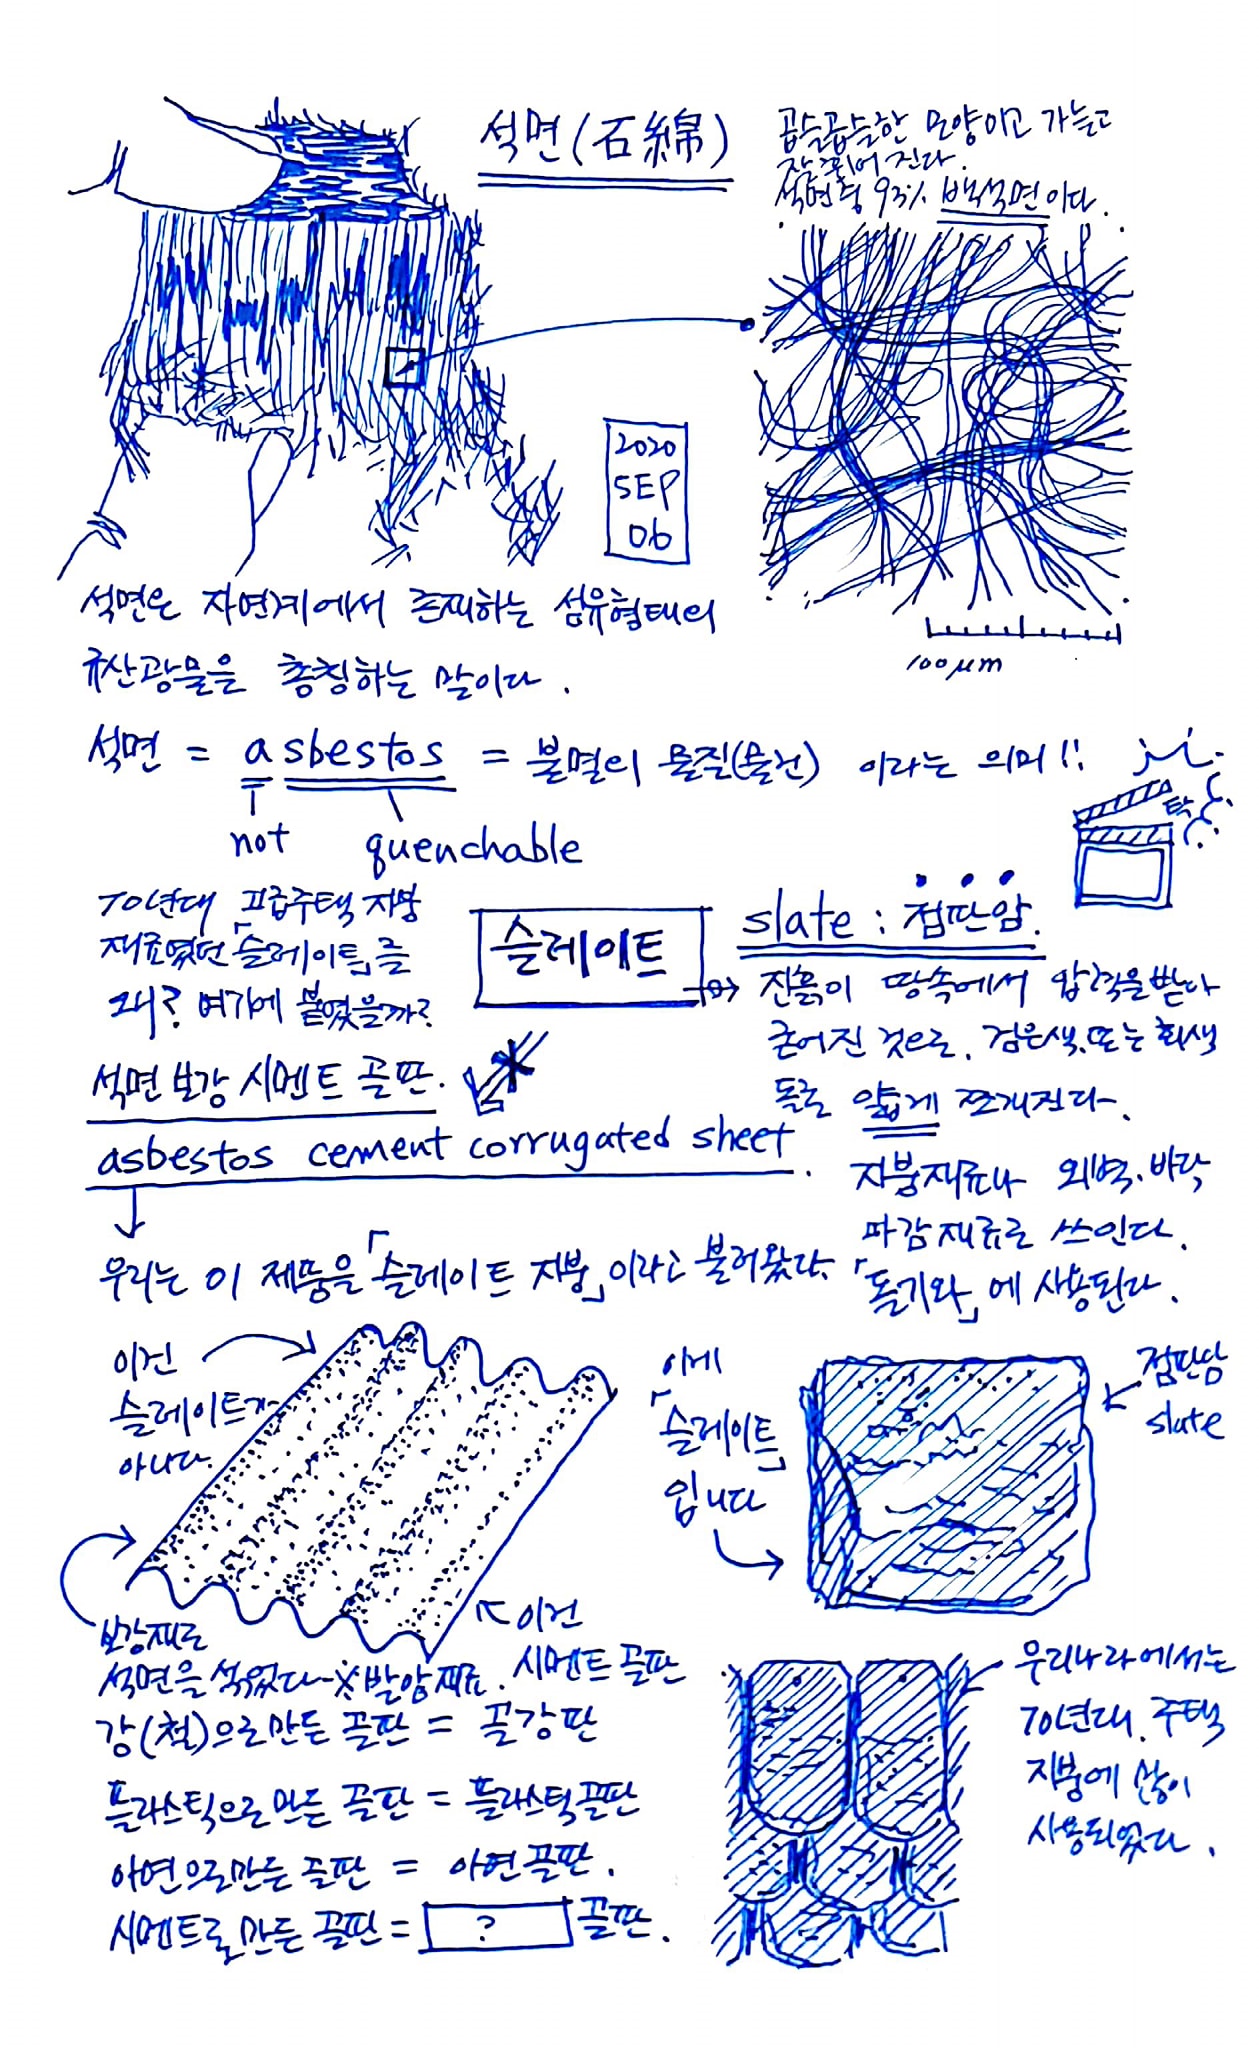 석면(石綿)
곱슬곱슬한 모양이고 가늘고
잘 휘어 진다.
석면중 93% 백석면이다.
2020
SEP
06
100μm
석면은 자연계에서 존재하는 섬유형태의
규산광물을 총칭하는 말이다.
석면 = asbestos = 불멸의 물질(물건) 이라는 의미!!
not quenchable
탁
70년대 고급주택 지붕
재료였던 「슬레이트」를
왜? 여기에 붙였을까?
슬레이트
slate : 점판암.
진흙이 땅속에서 압력을 받아
굳어진 것으로, 검은색.또는 회색
돌로 얇게 쪼개진다.
지붕재료나 외벽.바닥
마감재료로 쓰인다.
「돌기와」에 사용된다.
석면 보강 시멘트 골판.
asbestos cement corrugated sheet.
우리는 이 제품을 「슬레이트 지붕」이라고 불러왔다.
이건
슬레이트가
아니다.
이게
「슬레이트」
입니다
점판암
slate
보강재로
석면을 섞었다-※발암재료.
이건
시멘트 골판
강(철)으로 만든 골판 = 골강판
플라스틱으로 만든 골판 = 플라스틱골판
아연으로 만든 골판 = 아연골판.
시멘트로 만든 골판 = ? 골판.
우리나라에서는
70년대. 주택
지붕에 많이
사용되었다.